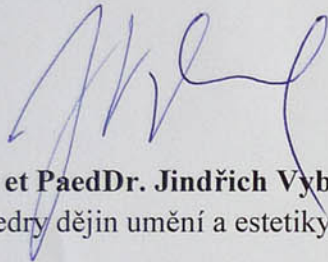 et PaedDr. Jindřich Vyb
edry dějin umění a estetiky